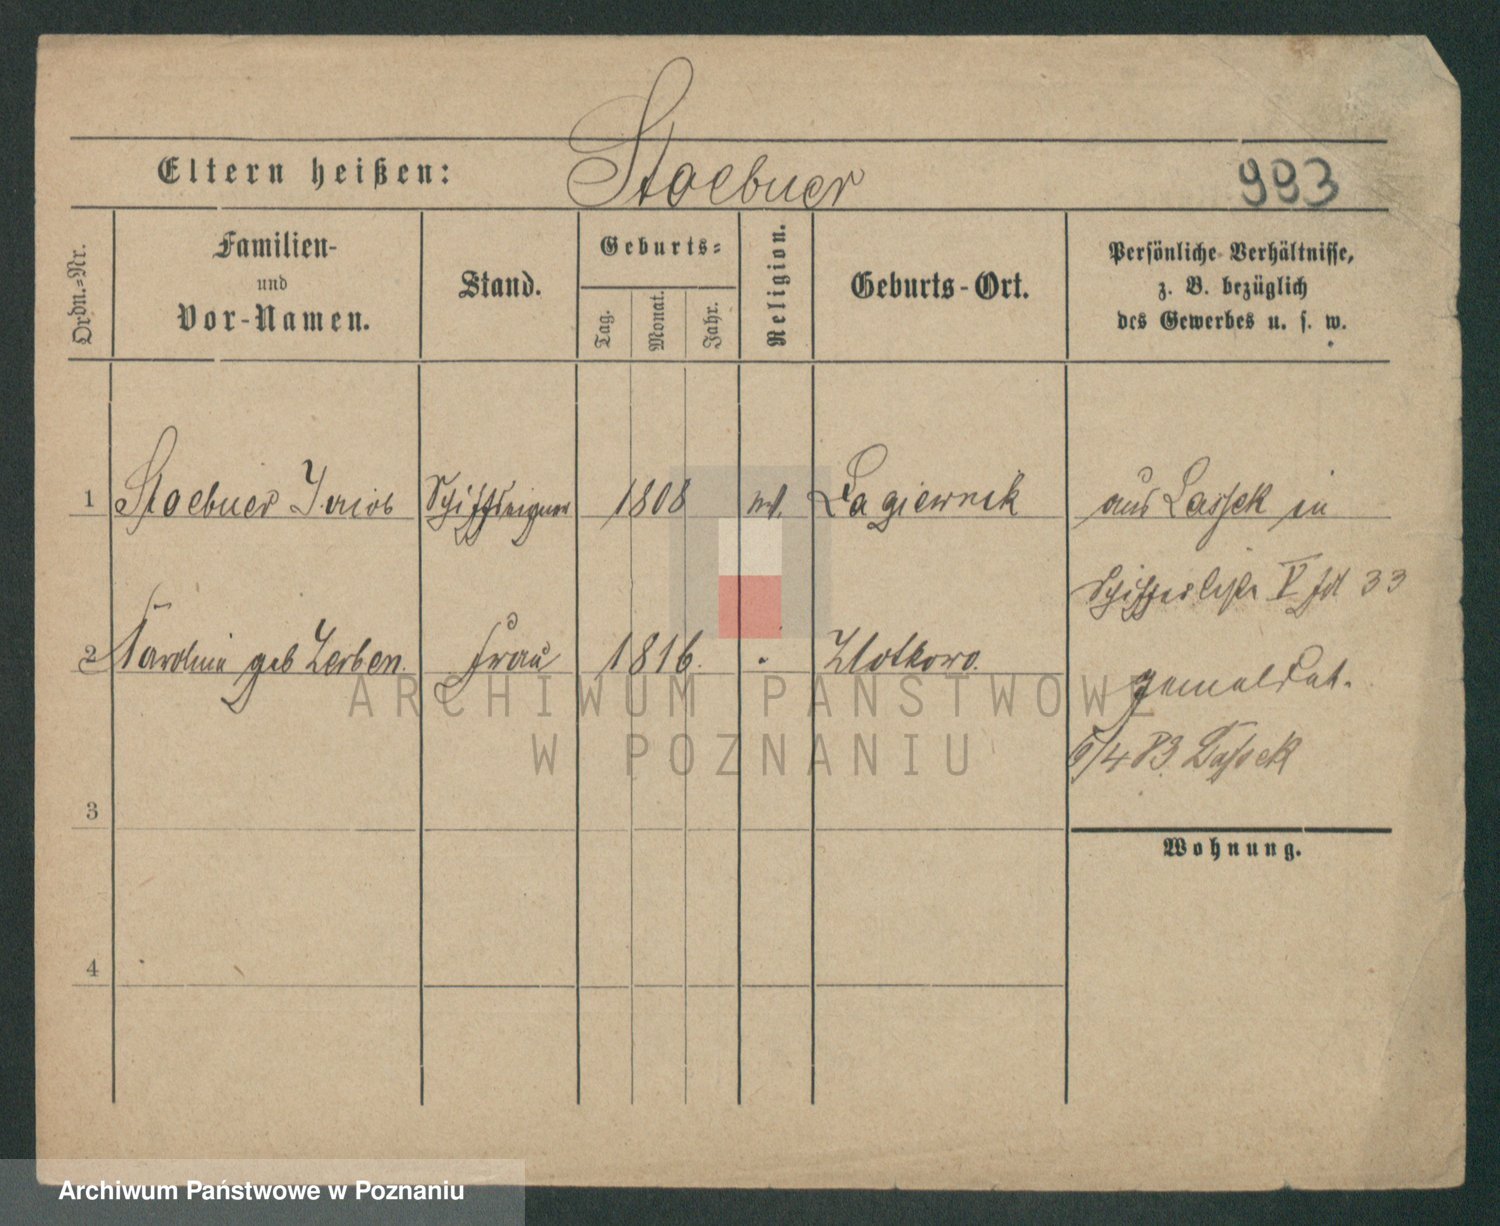 Eltern heißen: Stoebner 993
Ordn.-Nr.
Familien-
und
Vor-Namen.
Stand.
Geburts-
Tag.
Monat.
Jahr.
Religion.
Geburts-Ort.
Persönliche Verhältnisse,
z. B. bezüglich
des Gewerbes u. s. w.
1 Stoebner Jacob Schiffseigner 1808 Lagiewnik aus Lassek in
Schifferliste V 33
2 Karolina geb Zerben. Frau 1816. Zlotkowo.
gemeldet.
/4 83. Lassek
3
Wohnung.
4
ARCHIWUM PAŃSTWOWE
W POZNANIU
Archiwum Państwowe w Poznaniu